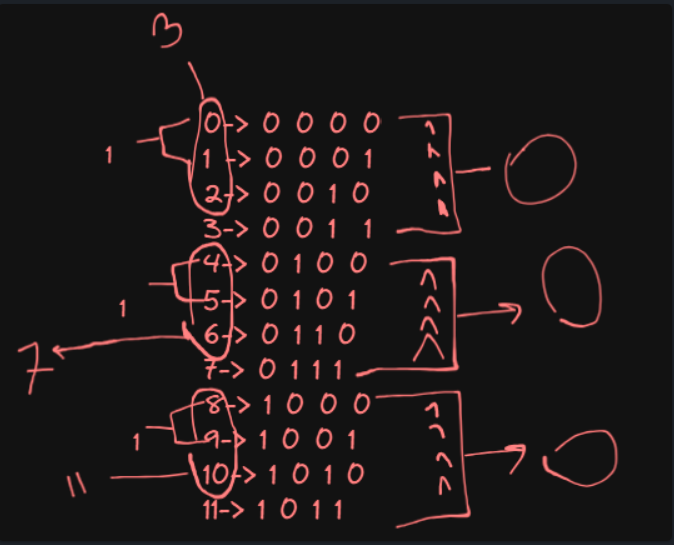 3
0-> 0 0 0 0
1
1-> 0 0 0 1
2-> 0 0 1 0
3-> 0 0 1 1
^ ^ ^ ^
0
4-> 0 1 0 0
1
5-> 0 1 0 1
6-> 0 1 1 0
7
7-> 0 1 1 1
^ ^ ^ ^
0
8-> 1 0 0 0
1
9-> 1 0 0 1
11
10-> 1 0 1 0
11-> 1 0 1 1
^ ^ ^ ^
0